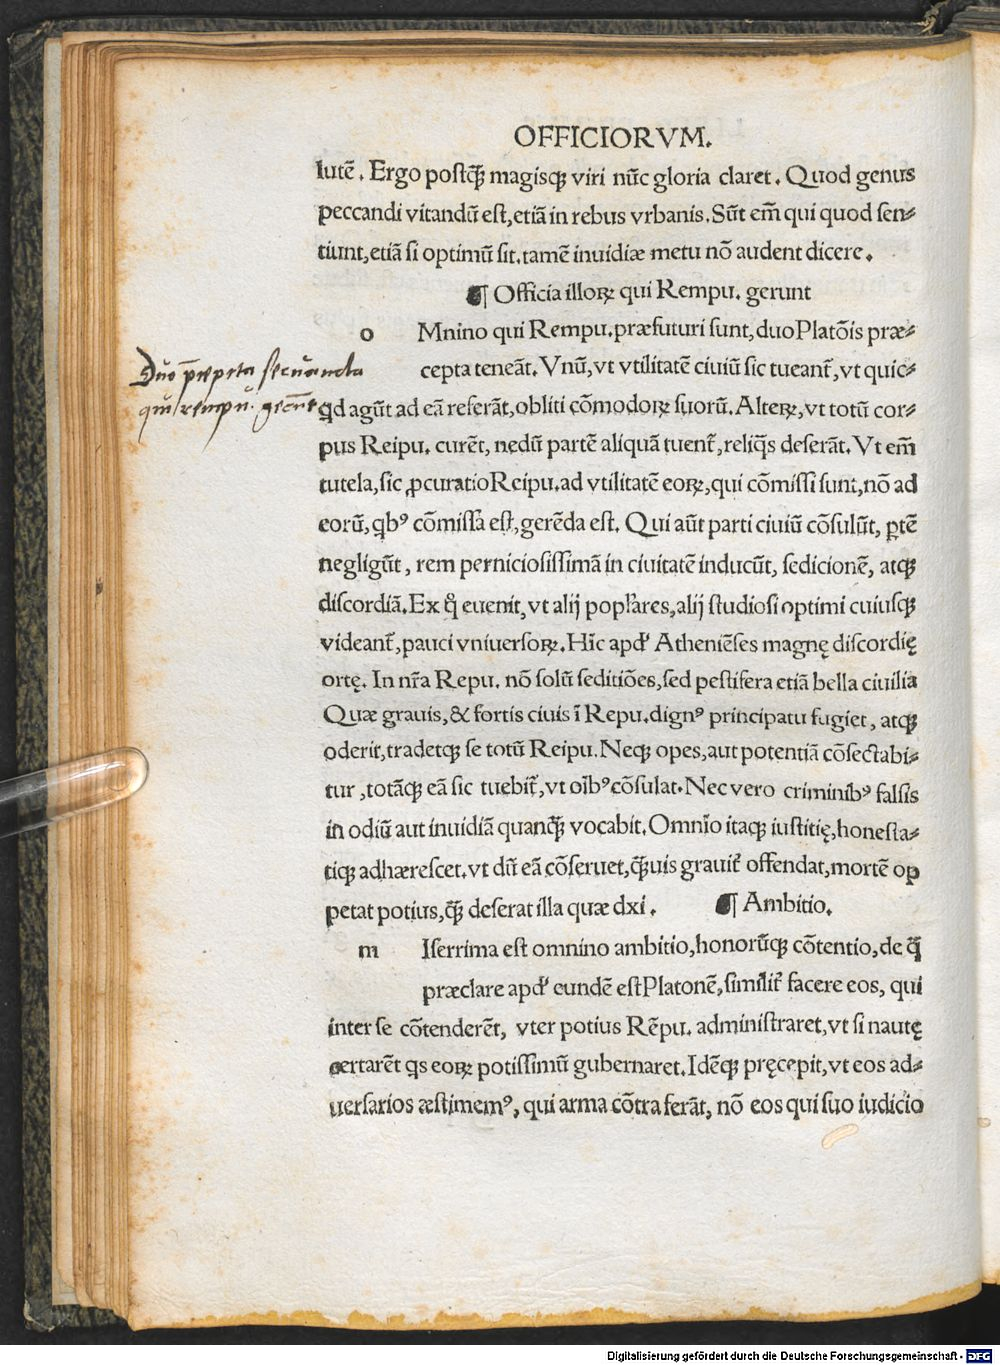 OFFICIORVM.
lutē. Ergo postꝗ̃ magisqꝫ viri nūc gloria claret. Quod genus
peccandi vitandū est, etiā in rebus vrbanis. Sūt em̄ qui quod sen⸗
tiunt, etiā si optimū sit. tamē inuidiæ metu nō audent dicere.
¶ Officia illoꝝ qui Rempu. gerunt
o Mnino qui Rempu. præfuturi sunt, duo Platōis præ⸗
cepta teneāt. Vnū, vt vtilitatē ciuiū sic tueant᷑, vt quic⸗
Duo p̄cepta seruanda
qui rempu. gerūt
qd agūt ad eā referāt, obliti cōmodoꝝ suorū. Alteꝝ, vt totū cor⸗
pus Reipu. curēt, nedū partē aliquā tuent᷑, reliq̄s deserāt. Vt em̄
tutela, sic ꝓcuratio Reipu. ad vtilitatē eoꝝ, qui cōmissi sunt, nō ad
eorū, qbꝰ cōmissa est, gerēda est. Qui aūt parti ciuiū cōsulūt, ꝑtē
negligūt, rem perniciosissimā in ciuitatē inducūt, sedicionē, atqꝫ
discordiā. Ex qͦ euenit, vt alij popl'ares, alij studiosi optimi cuiusqꝫ
videant᷑, pauci vniuersoꝝ. Hīc apd' Atheniēses magnę discordię
ortę. In nr̄a Repu. nō solū seditiōes, sed pestifera etiā bella ciuilia
Quæ grauis, & fortis ciuis ī Repu. dignꝰ principatu fugiet, atqꝫ
oderit, tradetqꝫ se totū Reipu. Neqꝫ opes, aut potentiā cōsectabi⸗
tur, totāqꝫ eā sic tuebit᷑, vt oībꝰ cōsulat. Nec vero criminibꝰ falsis
in odiū aut inuidiā quanꝗ̃ vocabit. Omnīo itaqꝫ iustitię, honesta⸗
tiqꝫ adhærescet. vt dū eā cōseruet, ꝗ̃uis grauit᷑ offendat, mortē op
petat potius, ꝗ̃ deserat illa quæ dxi. ¶ Ambitio.
m Iserrima est omnino ambitio, honorūqꝫ cōtentio, de q̄
præclare apd' eundē est Platonē, similit᷑ facere eos, qui
inter se cōtenderēt, vter potius Rēpu. administraret, vt si nautę
certarēt qs eoꝝ potissimū gubernaret. Idēqꝫ pręcepit, vt eos ad⸗
uersarios æstimemꝰ, qui arma cōtra ferāt, nō eos qui suo iudicio
Digitalisierung gefördert durch die Deutsche Forschungsgemeinschaft - DFG